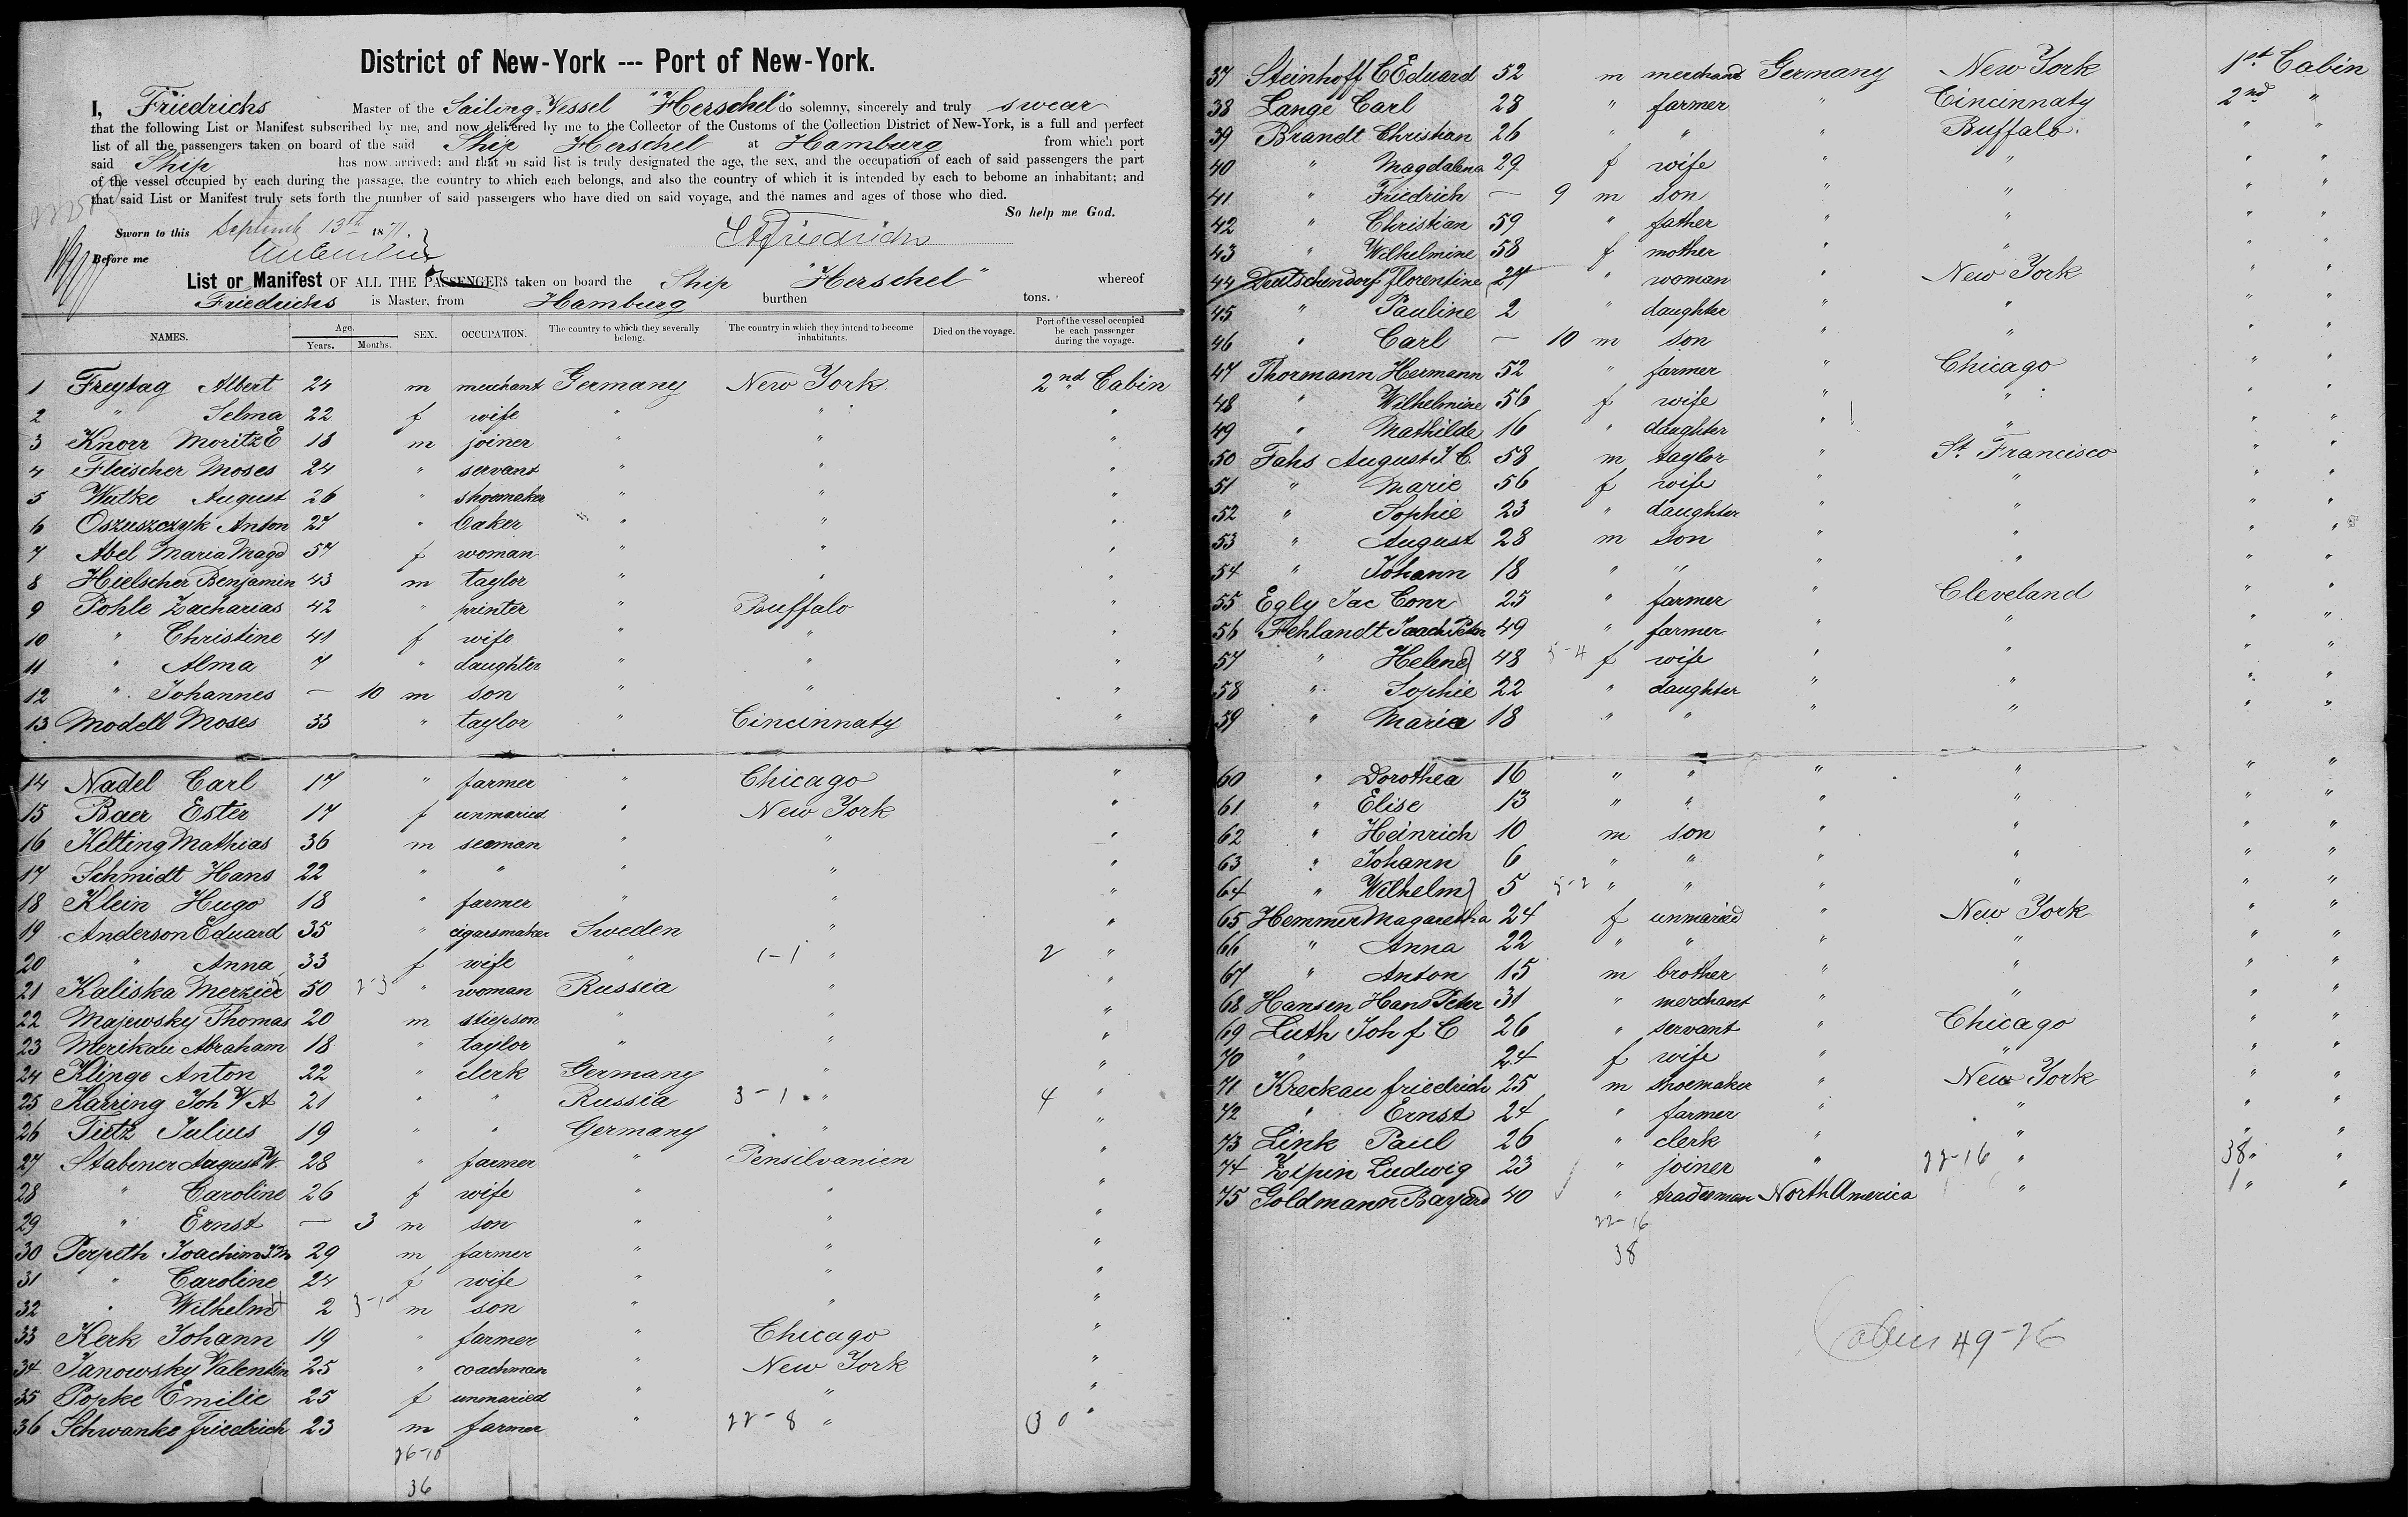 District of New-York --- Port of New-York.
I, Friedrichs Master of the Sailing-Vessel "Herschel" do solemny, sincerely and truly swear
that the following List or Manifest subscribed by me, and now delivered by me to the Collector of the Customs of the Collection District of New-York, is a full and perfect
list of all the passengers taken on board of the said Ship Herschel at Hamburg from which port
said Ship has now arrived: and that on said list is truly designated the age, the sex, and the occupation of each of said passengers the part
of the vessel occupied by each during the passage, the country to which each belongs, and also the country of which it is intended by each to bebome an inhabitant; and
that said List or Manifest truly sets forth the number of said passengers who have died on said voyage, and the names and ages of those who died.
So help me God.
Sworn to this 13th 1871.
Before me
List or Manifest OF ALL THE PASSENGERS taken on board the Ship "Herschel" whereof
Friedrichs is Master, from Hamburg burthen tons.
NAMES. Age. Years. Months. SEX. OCCUPATION. The country to which they severally belong. The country in which they intend to become inhabitants. Died on the voyage. Port of the vessel occupied be each passenger during the voyage.
1 Freytag Albert 24 m merchant Germany New York 2nd Cabin
2 " Selma 22 f wife " " "
3 Knorr Moritz E 18 m joiner " " "
4 Fleischer Moses 24 " servant " " "
5 Wutke August 26 " shoemaker " " "
6 Oszuszczyk Anton 27 " baker " " "
7 Abel Maria Magd 57 f woman " " "
8 Hielscher Benjamin 43 m taylor " " "
9 Pohle Zacharias 42 " printer " Buffalo "
10 " Christine 41 f wife " " "
11 " Alma 7 " daughter " " "
12 " Johannes — 10 m son " " "
13 Modell Moses 33 " taylor " Cincinnaty "
14 Nadel Carl 17 " farmer " Chicago "
15 Baer Ester 17 f unmaried " New York "
16 Kelting Mathias 36 m seaman " " "
17 Schmidt Hans 22 " " " " "
18 Klein Hugo 18 " farmer " " "
19 Anderson Eduard 35 " cigarsmaker Sweden " "
20 " Anna 33 f wife " 1-1 " 2 "
21 Kaliska 50 2-3 " woman Russia " "
22 Majewsky Thomas 20 m stiepson " " "
23 Merikau Abraham 18 " taylor " " "
24 Klinge Anton 22 " clerk Germany " "
25 Karring Joh W A 21 " " Russia 3-1 " 4 "
26 Tietz Julius 19 " " Germany " "
27 Stabener August W. 28 " farmer " Pensilvanien "
28 " Caroline 26 f wife " " "
29 " Ernst — 3 m son " " "
30 Perpeth Joachim 29 m farmer " " "
31 " Caroline 24 f wife " " "
32 " Wilhelm 2 3-1 m son " " "
33 Kerk Johann 19 " farmer " Chicago "
34 Janowsky Valentin 25 " coachman " New York "
35 Popke Emilie 25 f unmaried " " "
36 Schwanke Friedrich 23 m farmer " 22-8 " 30 "
26-10
36
37 Steinhoff C Eduard 52 m merchand Germany New York 1st Cabin
38 Lange Carl 28 " farmer " Cincinnaty 2nd "
39 Brandt Christian 26 " " " Buffalo. " "
40 " Magdalena 29 f wife " " " "
41 " Friedrich — 9 m son " " " "
42 " Christian 59 " father " " " "
43 " Wilhelmine 58 f mother " " " "
44 Deutschendorf Florentine 27 " woman " New York " "
45 " Pauline 2 " daughter " " " "
46 " Carl — 10 m son " " " "
47 Thormann Hermann 52 " farmer " Chicago " "
48 " Wilhelmine 56 f wife " " " "
49 " Mathilde 16 " daughter " " " "
50 Fahs August J. C. 58 m taylor " St. Francisco " "
51 " Marie 56 f wife " " " "
52 " Sophie 23 " daughter " " " "
53 " August 28 m son " " " "
54 " Johann 18 " " " " " "
55 Egly Jac Conr 25 " farmer " Cleveland " "
56 Fehlandt Joach Peter 49 " farmer " " " "
57 " Helene 48 5-4 f wife " " " "
58 " Sophie 22 " daughter " " " "
59 " Maria 18 " " " " " "
60 " Dorothea 16 " " " " " "
61 " Elise 13 " " " " " "
62 " Heinrich 10 m son " " " "
63 " Johann 6 " " " " " "
64 " Wilhelm 5 5-2 " " " " " "
65 Hemmer Magaretha 24 f unmaried " New York " "
66 " Anna 22 " " " " " "
67 " Anton 15 m brother " " " "
68 Hansen Hans Peter 31 " merchant " " " "
69 Luth Joh f C 26 " servant " Chicago " "
70 " 24 f wife " " " "
71 Kreckau friedrich 25 m shoemaker " New York " "
72 " Ernst 24 " farmer " " " "
73 Link Paul 26 " clerk " " " "
74 Elpin Ludwig 23 " joiner " 22-16 " 38 " "
75 Goldmann Bayard 40 " tradesman North America " 1 " "
22-16
38
49-26